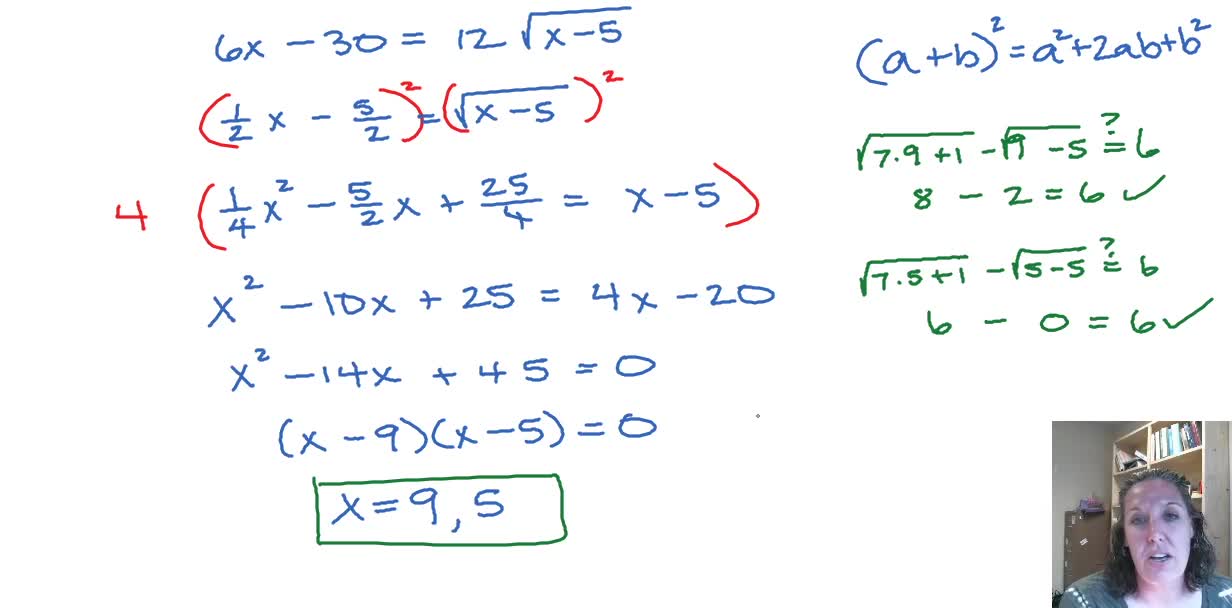 6x − 30 = 12 √(x − 5)
(1/2 x − 5/2)² = (√(x − 5))²
4 (1/4 x² − 5/2 x + 25/4 = x − 5)
x² − 10x + 25 = 4x − 20
x² − 14x + 45 = 0
(x − 9)(x − 5) = 0
x = 9, 5
(a + b)² = a² + 2ab + b²
√(7·9 + 1) − √(9 − 5) ≟ 6
8 − 2 = 6 ✓
√(7·5 + 1) − √(5 − 5) ≟ 6
6 − 0 = 6 ✓